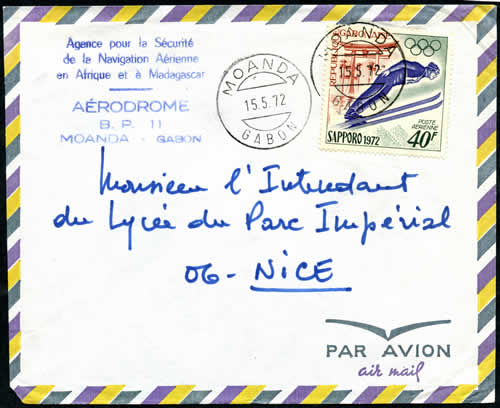 Agence pour la Sécurité
de la Navigation Aérienne
en Afrique et à Madagascar
AÉRODROME
B. P. 11
MOANDA - GABON
MOANDA
15.5.72
GABON
MOANDA
15.5.72
GABON
REPUBLIQUE GABONAISE
SAPPORO 1972
POSTE
AÉRIENNE
40F
Monsieur l'Intendant
du Lycée du Parc Impérial
06 - NICE
PAR AVION
air mail